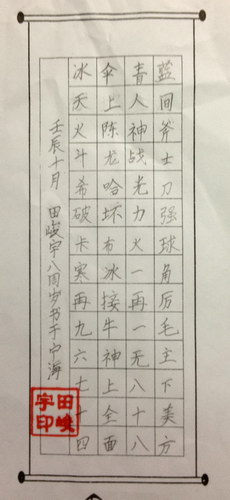 蓝间斧士刀强球角历毛主下美方
青人神战光力火一再一无八十八
伞上陈龙哈坏布冰接牛神上全面
冰天火斗希破卡寒再九六七十四
壬辰十月 田峻宇八周岁书于宁海
田峻
宇印